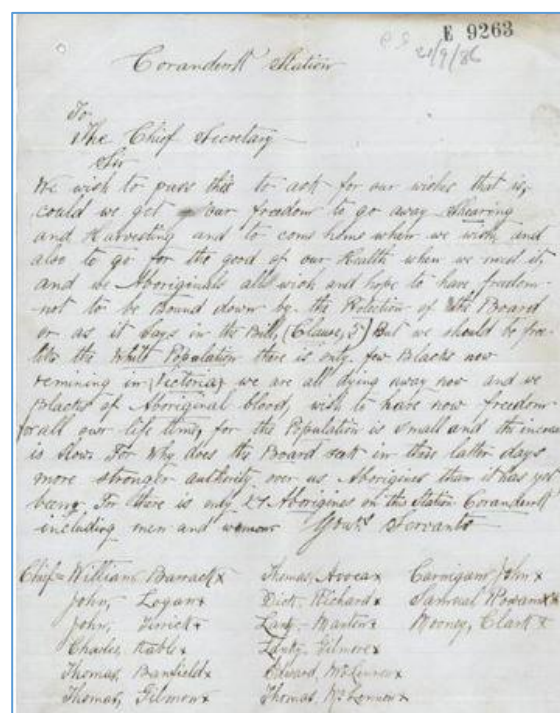 E 9263
21/9/86
Coranderrk Station
To
The Chief Secretary
Sir
We wish to pass this to ask for our wishes that is,
could we get our freedom to go away Shearing
and Harvesting and to come home when we wish and
also to go for the good of our Health when we need it,
and we Aboriginals all wish and hope to have freedom
not to be Bound down by the Protection of the Board
or as it says in the Bill, (Clause, 5) But we should be free
like the White Population there is only few Blacks now
remining in (Victoria) we are all dying away now and we
Blacks of Aboriginal blood, wish to have now freedom
for all our life time, for the Population is small and the increase
is slow. For Why does the Board seek in these latter days
more stronger authority over us Aborigines than it has yet
being. For there is only Aborigines on this Station Coranderrk
including men and Yours Servants
Chief= William Barrack x Thomas, Avoca x Carnigam John x
John, Logan x Dick, Richard x Samuel Rowan x
John, Terrick x Lanky, Manton x Mooney, Clark x
Charles, Kable x Lanky, Gilmore x
Thomas, Banfield x Edward, McLennon x
Thomas, Gilmore x Thomas, McLennon x